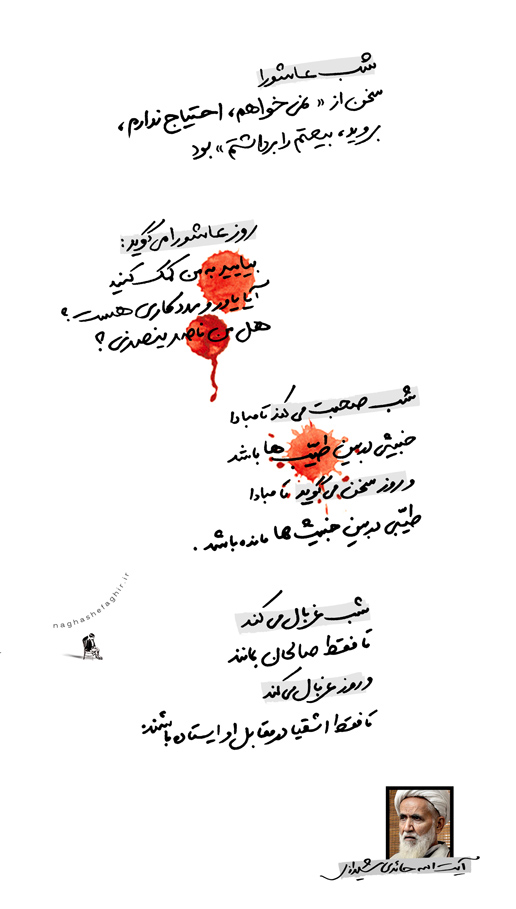 شب عاشورا
سخن از «نمی خواهم، احتیاج ندارم،
بروید، بیعتم را برداشتم» بود
روز عاشورا می گوید:
بیایید به من کمک کنید
آیا یاور و مددکاری هست؟
هل من ناصر ینصرنی؟
شب صحبت می کند تا مبادا
خبیثی در بین طیّب ها باشد
و روز سخن می گوید تا مبادا
طیّبی در بین خبیث ها مانده باشد.
naghashefaghir.ir
شب غربال می کند
تا فقط صالحان بمانند
و روز غربال می کند
تا فقط اشقیا در مقابل او ایستاده باشند.
آیت الله حائری شیرازی